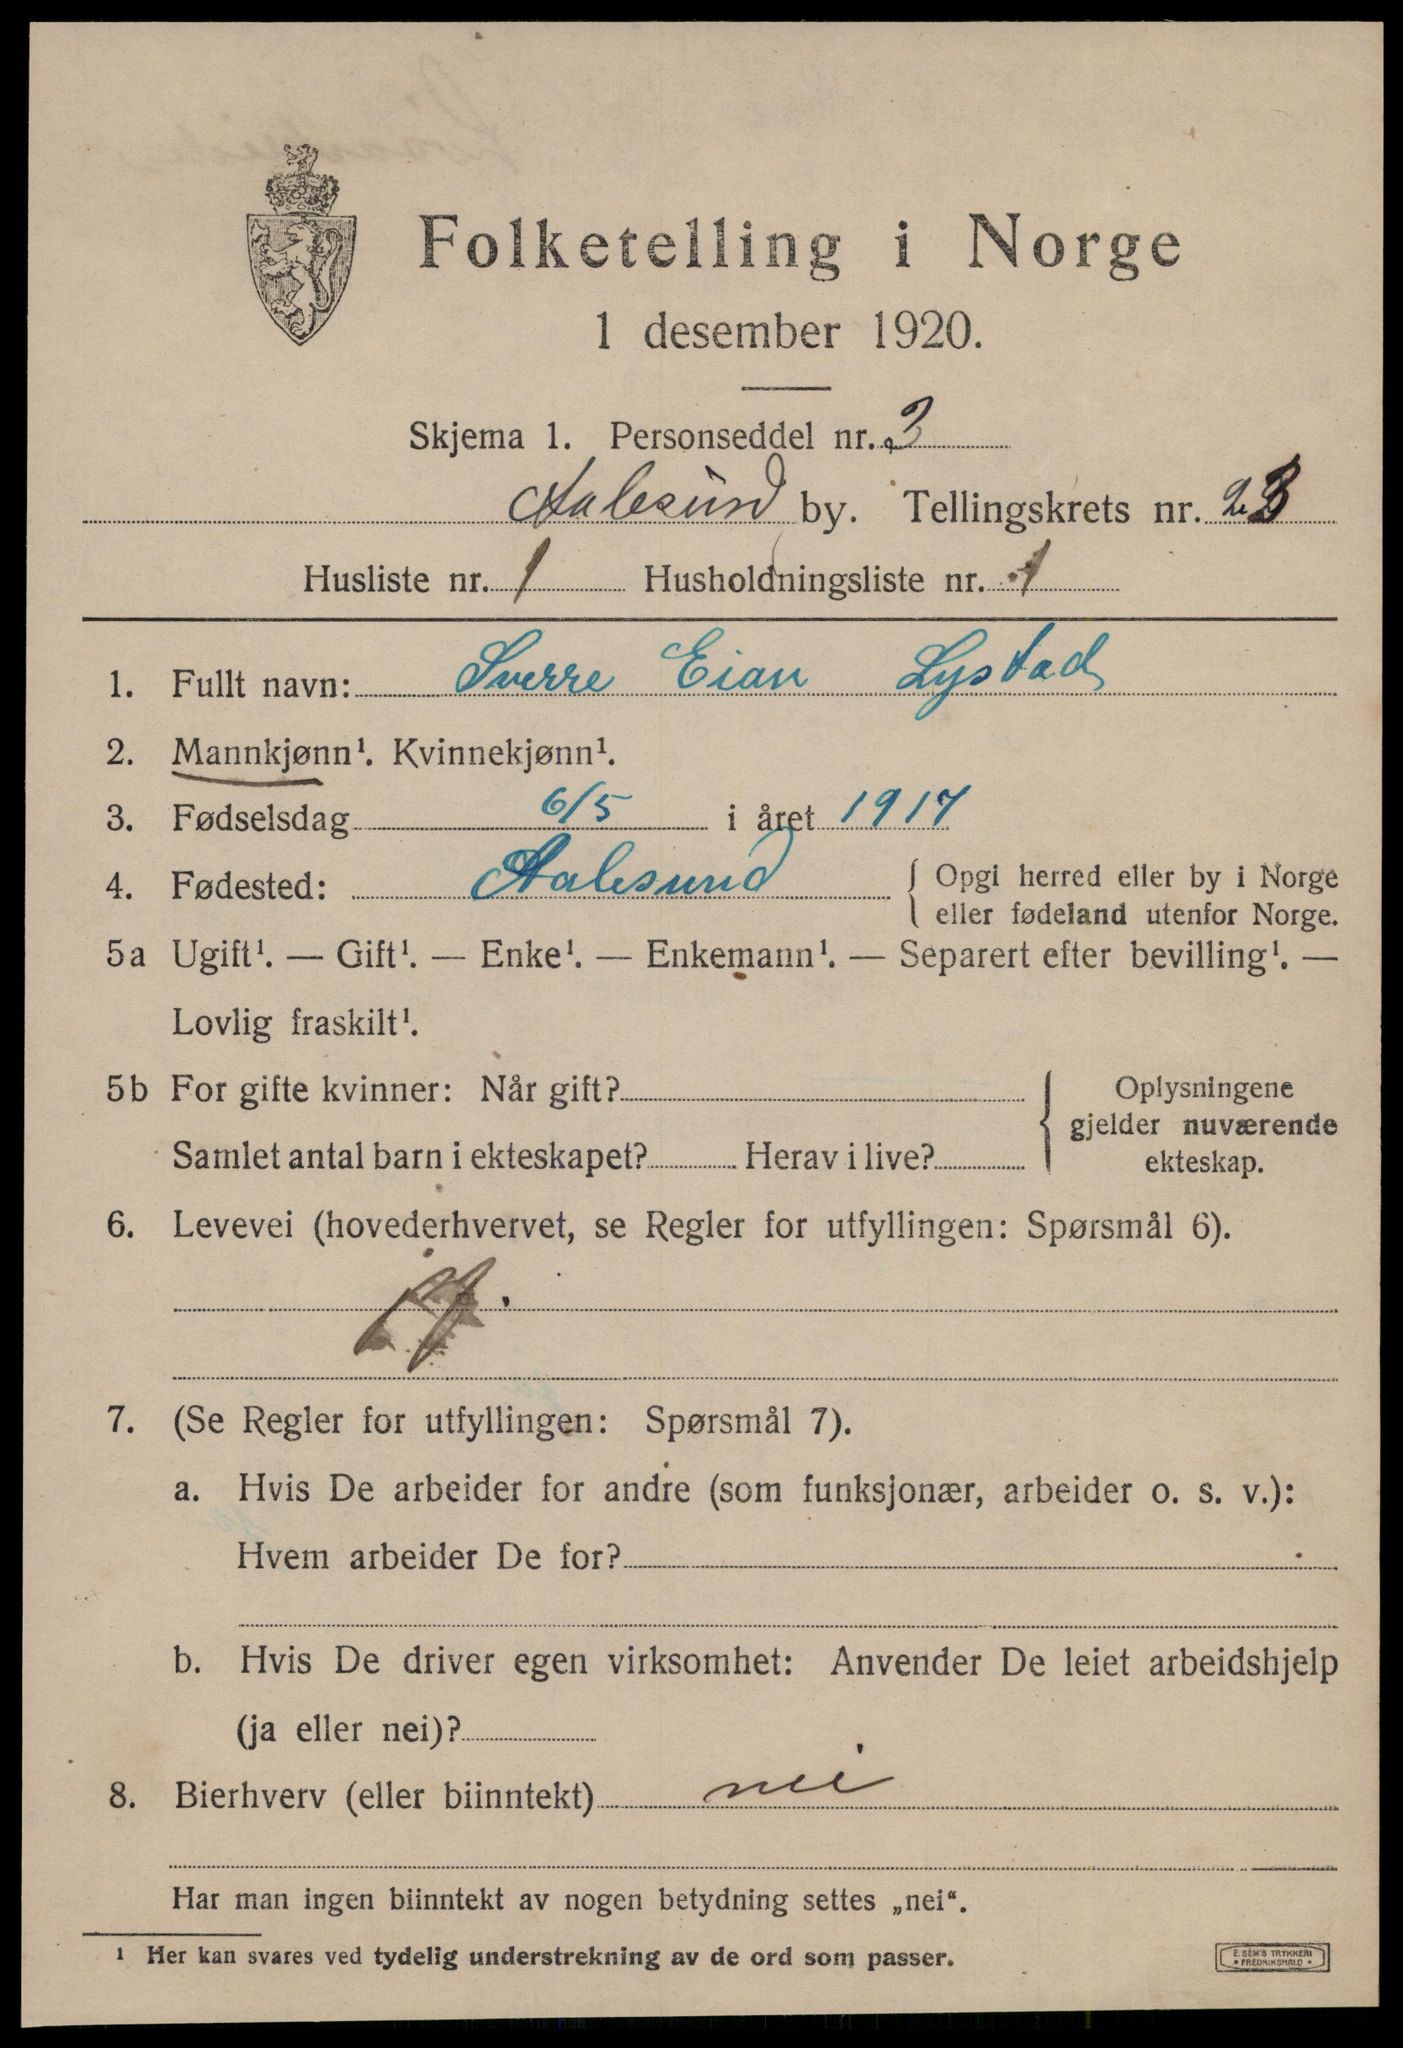 Folketelling i Norge
1 desember 1920.
Skjema 1. Personseddel nr. 3
Aalesund by. Tellingskrets nr. 23
Husliste nr. 1 Husholdningsliste nr. 1
1. Fullt navn: Sverre Eian Lystad
2. Mannkjønn¹. Kvinnekjønn¹.
3. Fødselsdag 6/5 i året 1917
4. Fødested: Aalesund { Opgi herred eller by i Norge
eller fødeland utenfor Norge.
5a Ugift¹. — Gift¹. — Enke¹. — Enkemann¹. — Separert efter bevilling¹. —
Lovlig fraskilt¹.
5b For gifte kvinner: Når gift?
Samlet antal barn i ekteskapet? Herav i live?
Oplysningene
gjelder nuværende
ekteskap.
6. Levevei (hovederhvervet, se Regler for utfyllingen: Spørsmål 6).
7. (Se Regler for utfyllingen: Spørsmål 7).
a. Hvis De arbeider for andre (som funksjonær, arbeider o. s. v.):
Hvem arbeider De for?
b. Hvis De driver egen virksomhet: Anvender De leiet arbeidshjelp
(ja eller nei)?
8. Bierhverv (eller biinntekt) nei
Har man ingen biinntekt av nogen betydning settes „nei“.
¹ Her kan svares ved tydelig understrekning av de ord som passer.
E. SEM'S TRYKKERI
• FREDRIKSHALD •